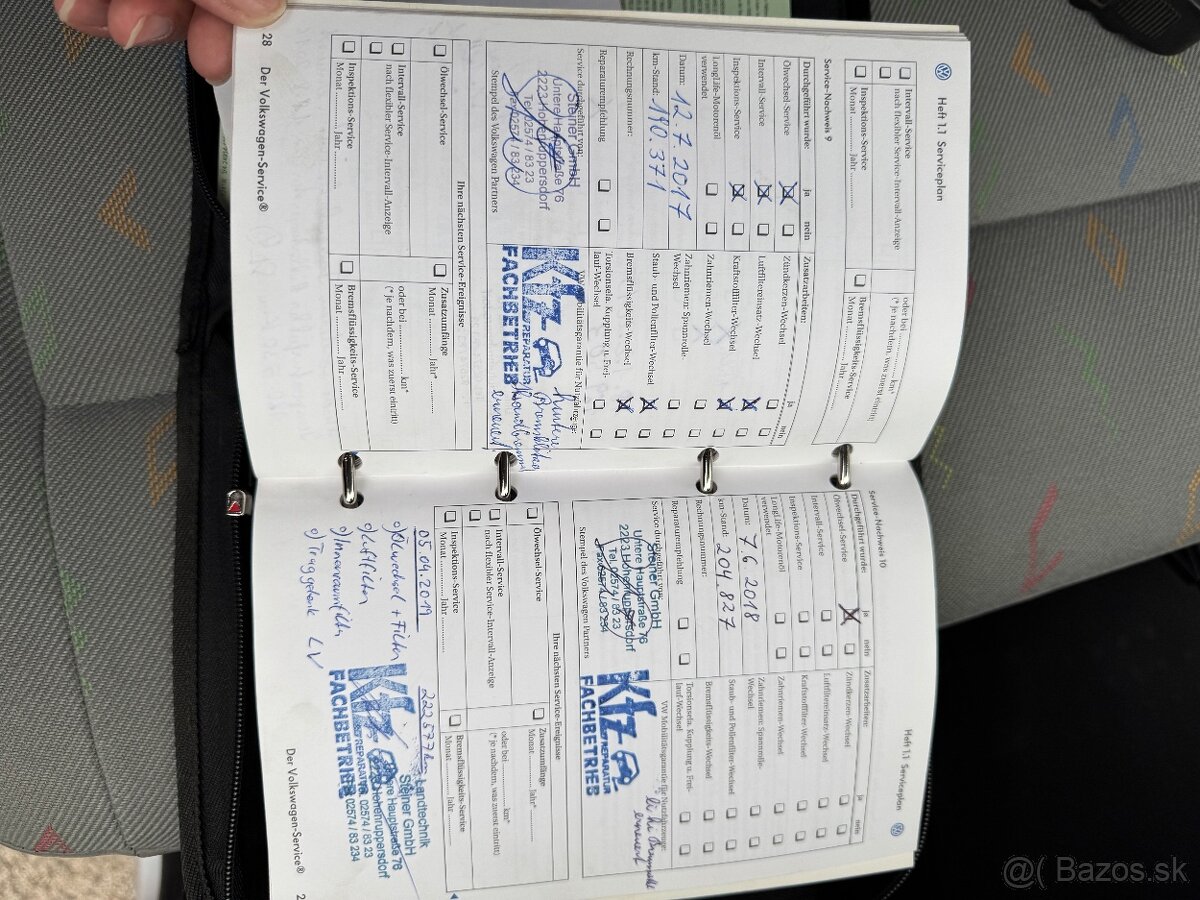 Heft 1.1 Serviceplan
Intervall-Service
nach flexibler Service-Intervall-Anzeige
Inspektions-Service
Monat ........... Jahr ...........
oder bei ........... km*
(* je nachdem, was zuerst eintritt)
Bremsflüssigkeits-Service
Monat ........... Jahr ...........
Service-Nachweis 9
Durchgeführt wurde: ja nein
Ölwechsel-Service
Intervall-Service
Inspektions-Service
LongLife-Motorenöl
verwendet
Datum: 12.7 2017
km-Stand: 190.371
Rechnungsnummer:
Reparaturempfehlung
Zusatzarbeiten: ja nein
Zündkerzen-Wechsel
Luftfiltereinsatz-Wechsel
Kraftstofffilter-Wechsel
Zahnriemen-Wechsel
Zahnriemen: Spannrolle-
Wechsel
Staub- und Pollenfilter-Wechsel
Bremsflüssigkeits-Wechsel
Torsionsela. Kupplung u. Frei-
lauf-Wechsel
Service durchgeführt von:
Steiner GmbH
Untere Hauptstraße 76
2223 Hohenruppersdorf
Tel. 02574 / 83 23
Fax 02574 / 83 234
Stempel des Volkswagen Partners
VW Mobilitätsgarantie für Nutzfahrzeuge:
Kfz-
REPARATUR
FACHBETRIEB
hintere
erneuert
Ihre nächsten Service-Ereignisse
Ölwechsel-Service
Intervall-Service
nach flexibler Service-Intervall-Anzeige
Inspektions-Service
Monat ........... Jahr ...........
Zusatzumfänge
Monat ........... Jahr* ...........
oder bei ........... km*
(* je nachdem, was zuerst eintritt)
Bremsflüssigkeits-Service
Monat ........... Jahr ...........
28 Der Volkswagen-Service®
Heft 1.1 Serviceplan
Service-Nachweis 10
Durchgeführt wurde: ja nein
Ölwechsel-Service
Intervall-Service
Inspektions-Service
LongLife-Motorenöl
verwendet
Datum: 7.6 2018
km-Stand: 204.827
Rechnungsnummer:
Reparaturempfehlung
Zusatzarbeiten: ja nein
Zündkerzen-Wechsel
Luftfiltereinsatz-Wechsel
Kraftstofffilter-Wechsel
Zahnriemen-Wechsel
Zahnriemen: Spannrolle-
Wechsel
Staub- und Pollenfilter-Wechsel
Bremsflüssigkeits-Wechsel
Torsionsela. Kupplung u. Frei-
lauf-Wechsel
Service durchgeführt von:
Steiner GmbH
Untere Hauptstraße 76
2223 Hohenruppersdorf
Tel. 02574 / 83 23
Fax 02574 / 83 234
Stempel des Volkswagen Partners
VW Mobilitätsgarantie für Nutzfahrzeuge:
Kfz-
REPARATUR
FACHBETRIEB
erneuert
Ihre nächsten Service-Ereignisse
Ölwechsel-Service
Intervall-Service
nach flexibler Service-Intervall-Anzeige
Inspektions-Service
Monat ........... Jahr ...........
Zusatzumfänge
Monat ........... Jahr* ...........
oder bei ........... km*
(* je nachdem, was zuerst eintritt)
Bremsflüssigkeits-Service
Monat ........... Jahr ...........
05.04.2019
o) Ölwechsel + Filter
o) Luftfilter
o) Innenraumfilter
o) Traggelenk LV
Kfz-
REPARATUR
FACHBETRIEB
Landtechnik
Steiner GmbH
Untere Hauptstraße 76
2223 Hohenruppersdorf
Tel. 02574 / 83 23
Fax 02574 / 83 234
Der Volkswagen-Service® 2
@( Bazos.sk